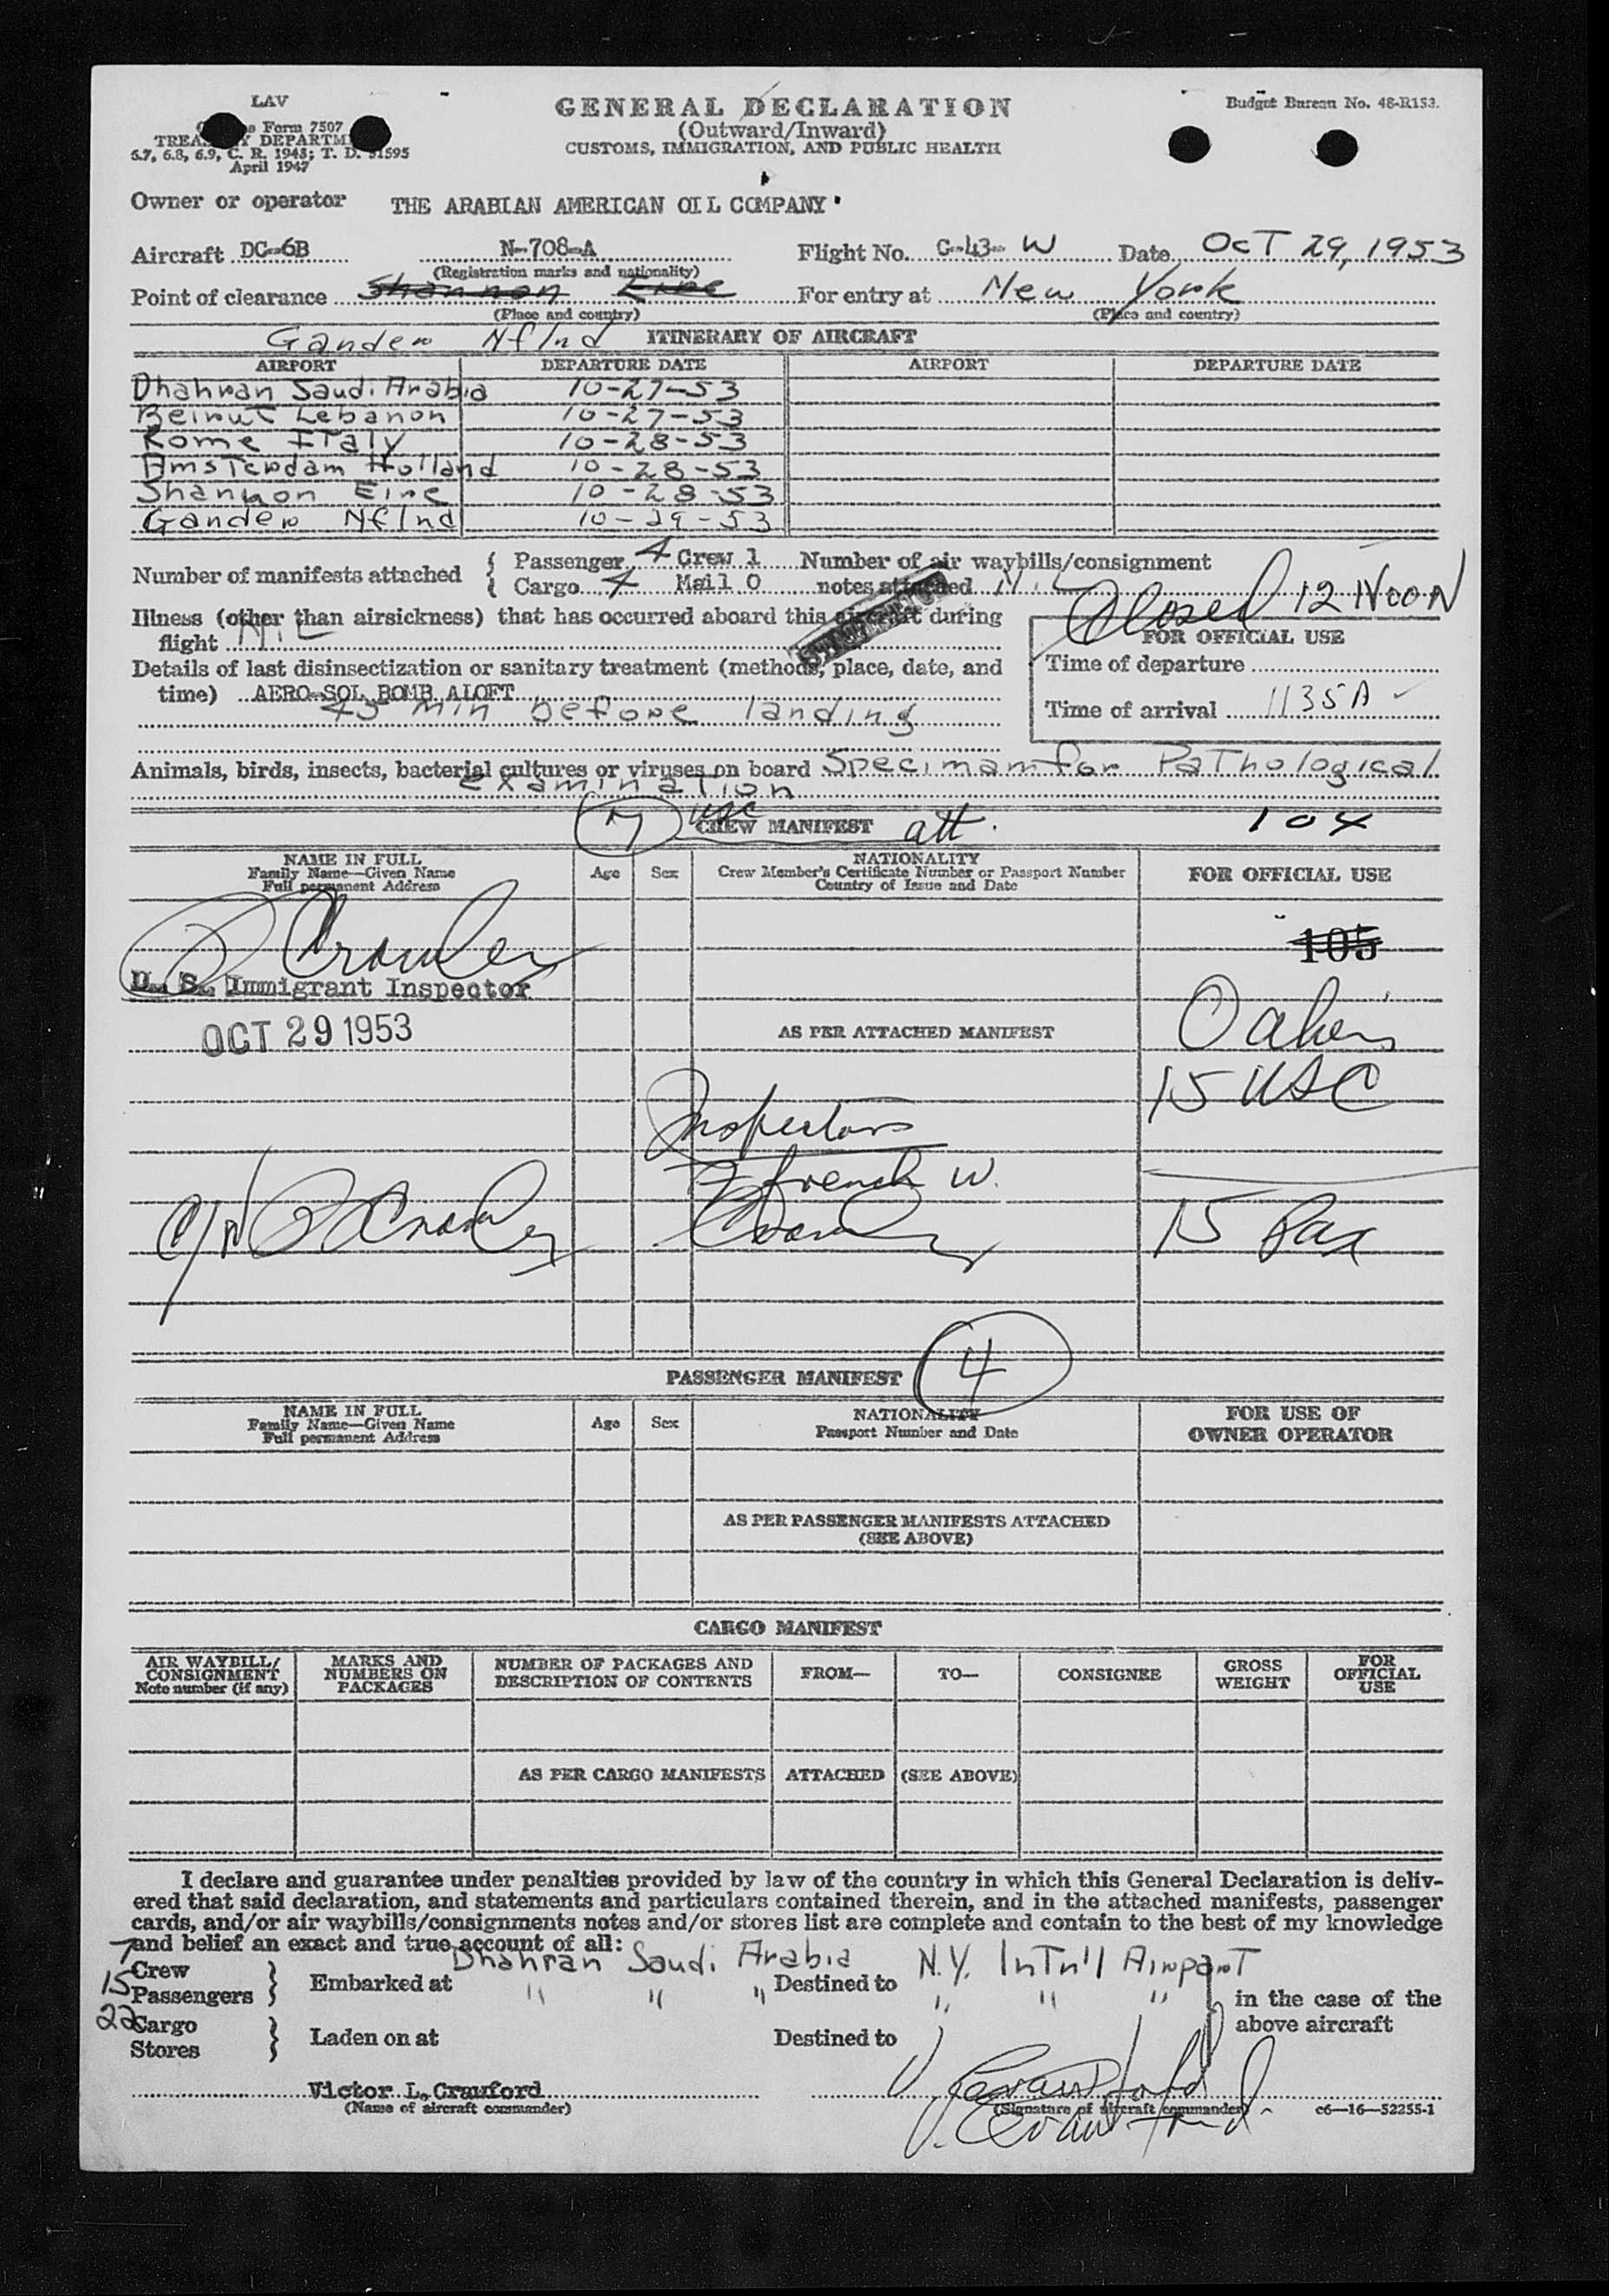 LAV
GENERAL DECLARATION
Budget Bureau No. 48-R153.
Form 7507
(Outward/Inward)
TREASURY DEPARTMENT
CUSTOMS, IMMIGRATION, AND PUBLIC HEALTH
6.7, 6.8, 6.9, C. R. 1943; T. D. 51595
April 1947
Owner or operator THE ARABIAN AMERICAN OIL COMPANY
Aircraft DC-6B N-708-A Flight No. C-43- W Date OcT 29, 1953
(Registration marks and nationality)
Point of clearance Shannon Eire For entry at New York
(Place and country) (Place and country)
Gander Nflnd ITINERARY OF AIRCRAFT
AIRPORT DEPARTURE DATE AIRPORT DEPARTURE DATE
Dhahran Saudi Arabia 10-27-53
Beirut Lebanon 10-27-53
Rome ITaly 10-28-53
AmsTerdam Holland 10-28-53
Shannon Eire 10-28-53
Gander Nflnd 10-29-53
Number of manifests attached { Passenger 4 Crew 1 Number of air waybills/consignment
Cargo 4 Mail 0 notes attached NiL
Closed 12 NOON
Illness (other than airsickness) that has occurred aboard this aircraft during
flight NiL
FOR OFFICIAL USE
Details of last disinsectization or sanitary treatment (methods, place, date, and
Time of departure
time) AERO-SOL BOMB ALOFT
45 min before landing
Time of arrival 1135A
Animals, birds, insects, bacterial cultures or viruses on board Speciman for PaThological
examinaTion
7 usc CREW MANIFEST att. 104
NAME IN FULL
Family Name—Given Name
Full permanent Address
Age Sex
NATIONALITY
Crew Member's Certificate Number or Passport Number
Country of Issue and Date
FOR OFFICIAL USE
Crowley
105
U. S. Immigrant Inspector
OCT 29 1953
AS PER ATTACHED MANIFEST
0 aliens
15 USC
Inspectors
French W.
Crowley
Crowley
15 Pax
PASSENGER MANIFEST 4
NAME IN FULL
Family Name—Given Name
Full permanent Address
Age Sex
NATIONALITY
Passport Number and Date
FOR USE OF
OWNER OPERATOR
AS PER PASSENGER MANIFESTS ATTACHED
(SEE ABOVE)
CARGO MANIFEST
AIR WAYBILL/
CONSIGNMENT
Note number (if any)
MARKS AND
NUMBERS ON
PACKAGES
NUMBER OF PACKAGES AND
DESCRIPTION OF CONTENTS
FROM—
TO—
CONSIGNEE
GROSS
WEIGHT
FOR
OFFICIAL
USE
AS PER CARGO MANIFESTS ATTACHED (SEE ABOVE)
I declare and guarantee under penalties provided by law of the country in which this General Declaration is deliv-
ered that said declaration, and statements and particulars contained therein, and in the attached manifests, passenger
cards, and/or air waybills/consignments notes and/or stores list are complete and contain to the best of my knowledge
and belief an exact and true account of all:
7 Crew
15 Passengers } Embarked at Dhahran Saudi Arabia Destined to N.Y. InTn'l AirporT
" " " " " "
in the case of the
above aircraft
22 Cargo
Stores } Laden on at Destined to
Victor L. Crauford V. Crawford
(Name of aircraft commander) (Signature of aircraft commander) c6—16—52255-1
V. Crawford